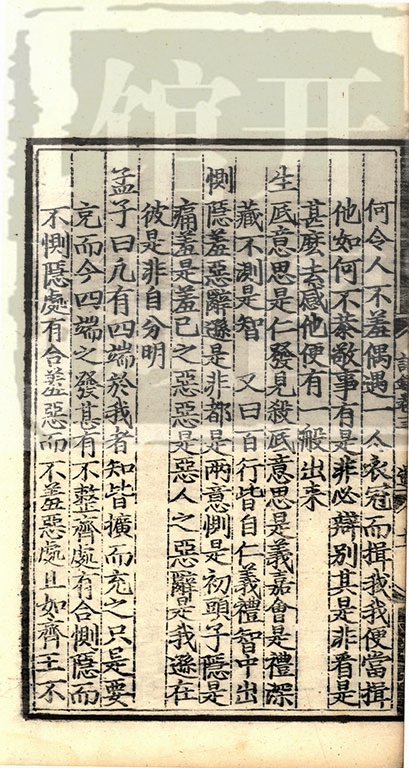 何令人不羞偶遇一个衣冠而揖我我便當揖
他如何不恭敬事有是非必辯別其是非看是
甚麽去感他便有一般出来
生底意思是仁發見殺底意思是義嘉會是禮深
藏不測是智　又曰百行皆自仁義禮智中出
惻隱羞惡辭遜是非都是兩意惻是初頭子隱是
痛羞是羞己之惡惡是惡人之惡辭是我遜在
彼是非自分明
孟子曰凡有四端於我者知皆擴而充之只是要
充而今四端之發甚有不整齊處有合惻隱而
不惻隱處有合羞惡而不羞惡處且如齊王不